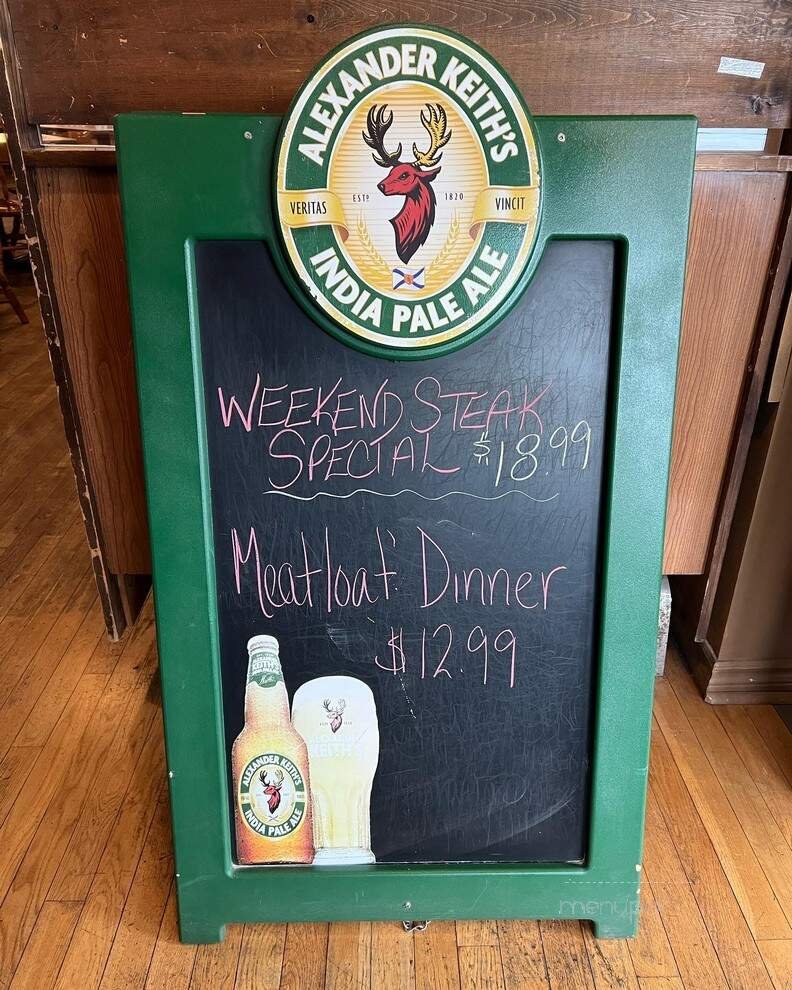 ALEXANDER KEITH'S
ESTD 1820
VERITAS VINCIT
INDIA PALE ALE
WEEKEND STEAK
SPECIAL $18.99
Meatloaf Dinner
$12.99
KEITH'S
ALEXANDER KEITH'S
INDIA PALE ALE
KEITH'S